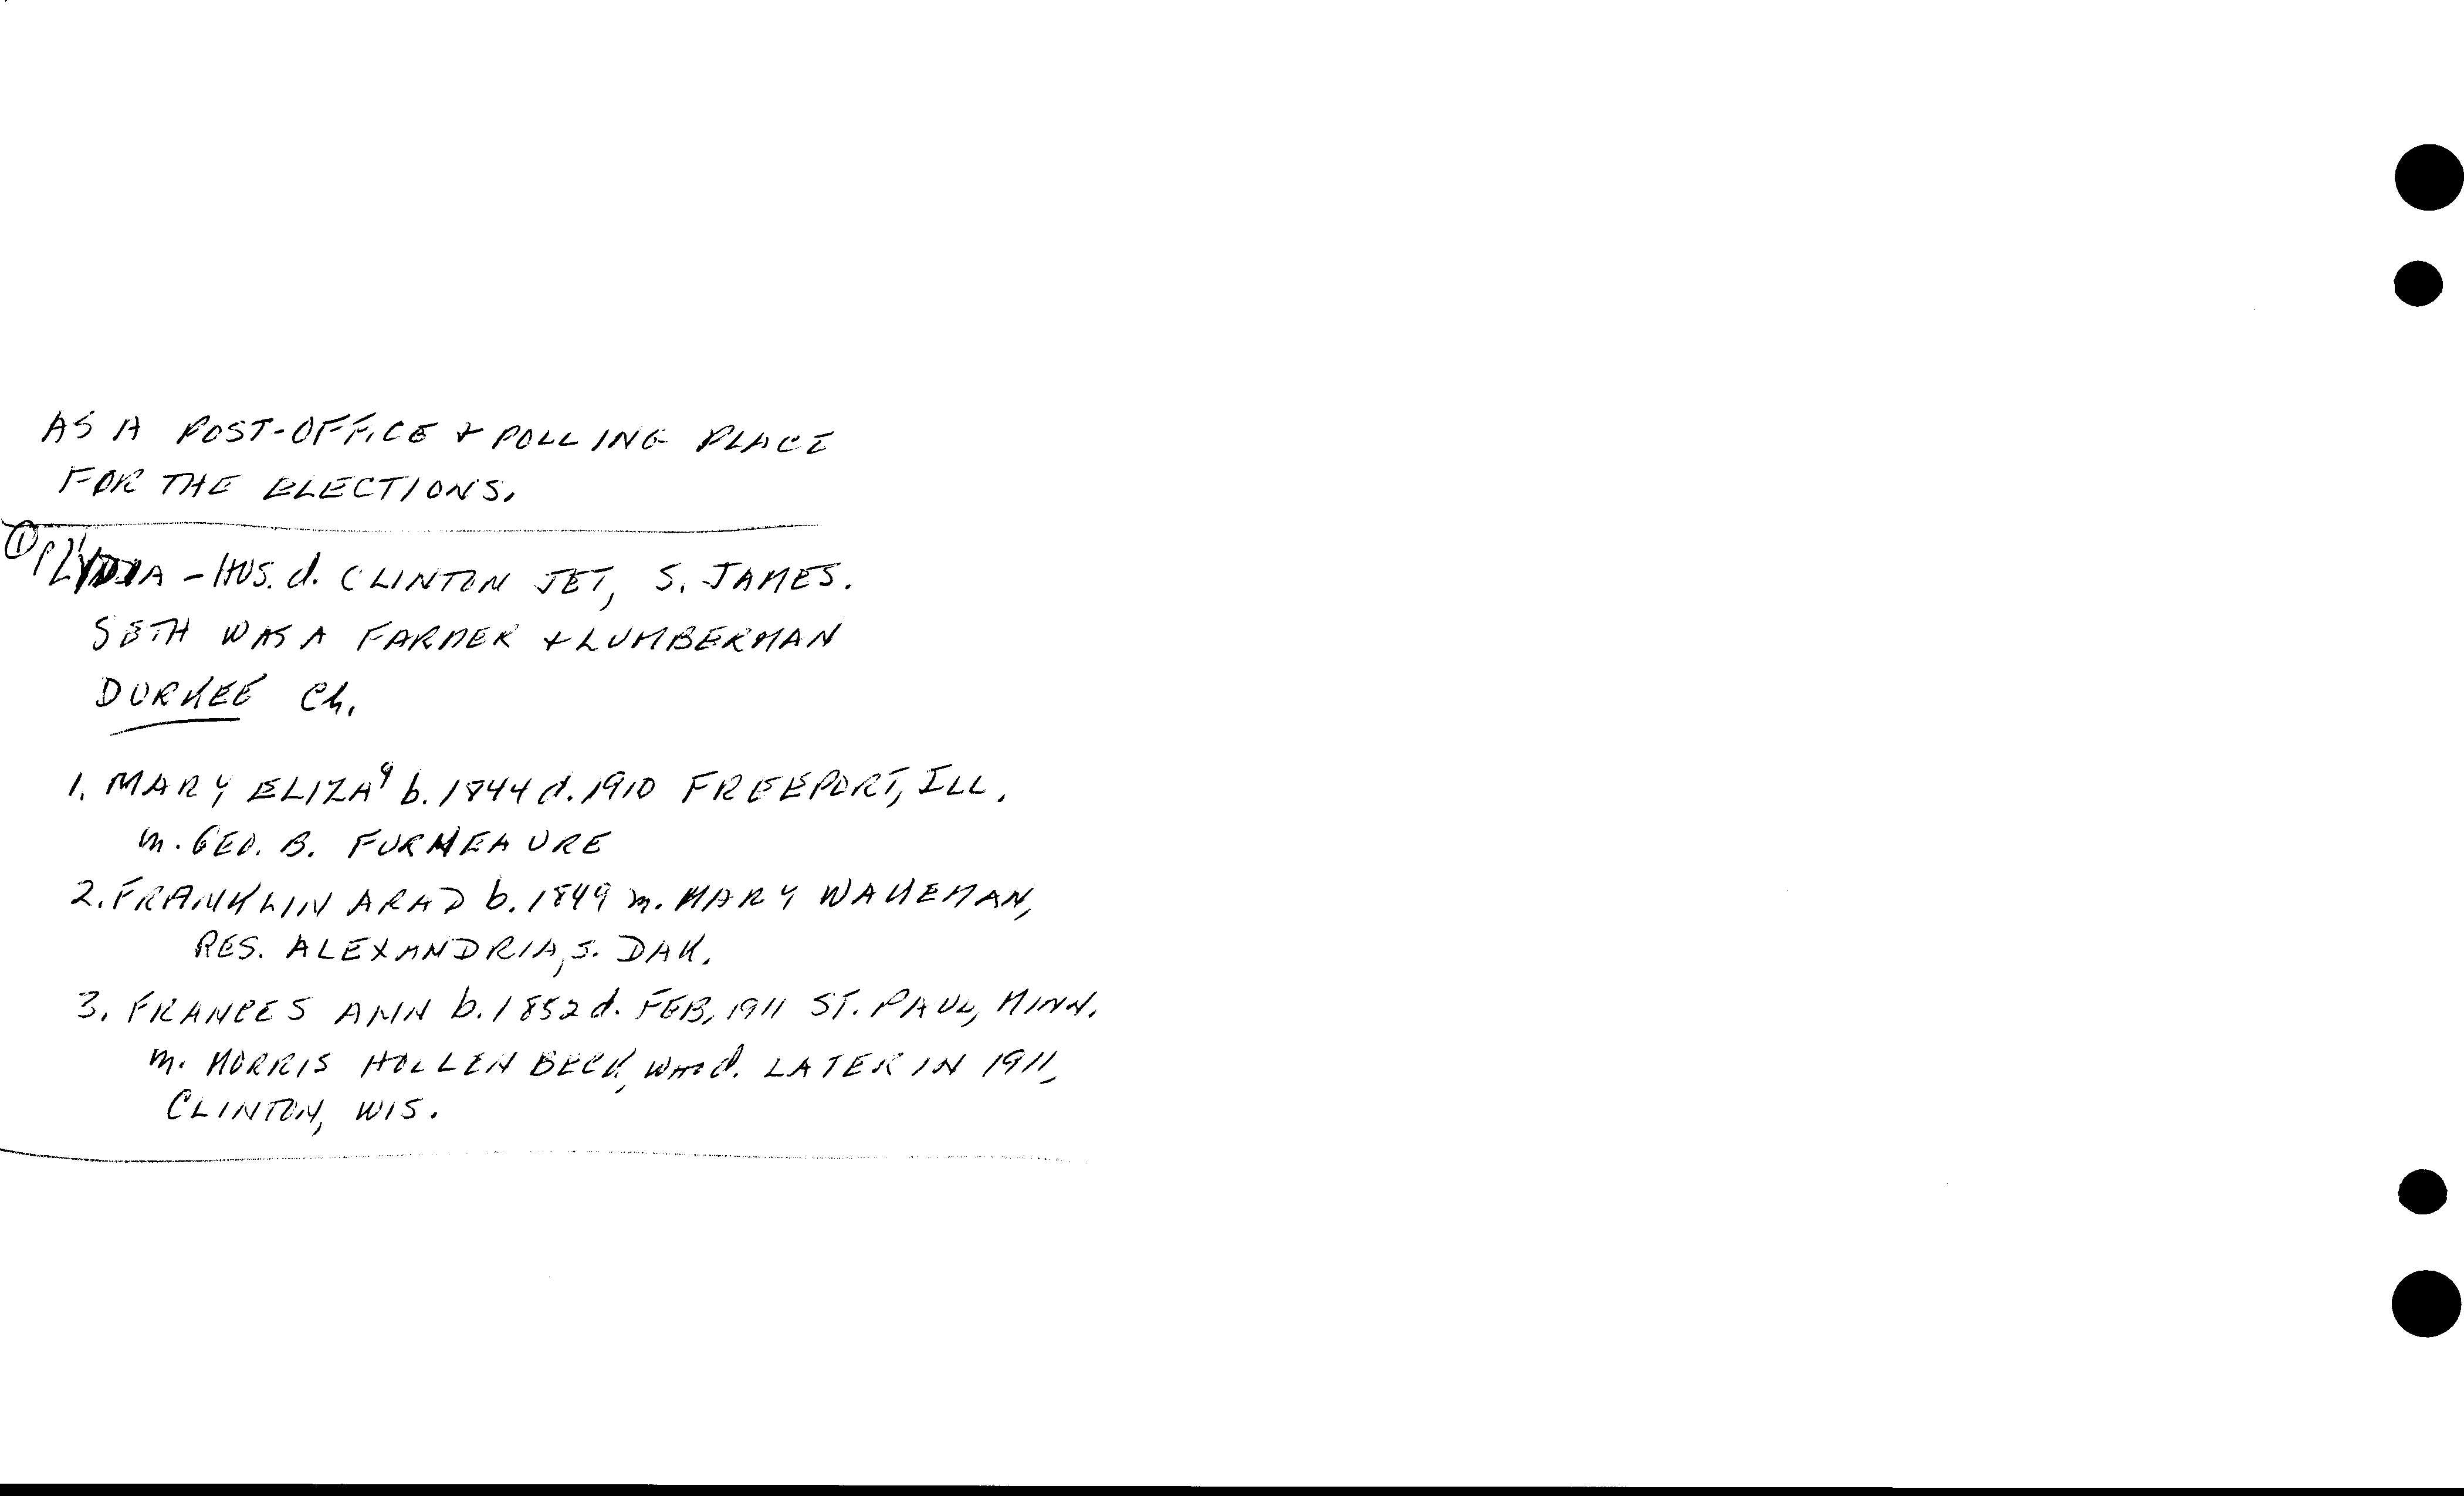 AS A POST-OFFICE & POLLING PLACE
FOR THE ELECTIONS.
① LYDIA - HUS. d. CLINTON JCT, S. JAMES.
SETH WAS A FARMER & LUMBERMAN
DURKEE Ch.
1. MARY ELIZA⁹ b. 1844 d. 1910 FREEPORT, ILL.
m. GEO. B. FURMEAURE
2. FRANKLIN ARAD b. 1849 m. MARY WAKEMAN,
RES. ALEXANDRIA, S. DAK.
3. FRANCES ANN b. 1852 d. FEB, 1911 ST. PAUL, MINN.
m. MORRIS HOLLENBECK, WHO d. LATER IN 1911,
CLINTON, WIS.